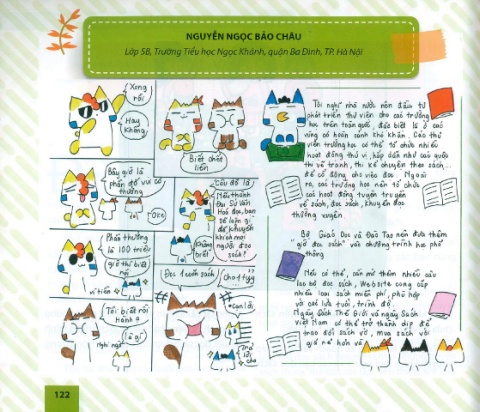 NGUYỄN NGỌC BẢO CHÂU
Lớp 5B, Trường Tiểu học Ngọc Khánh, quận Ba Đình, TP. Hà Nội
Xong
rồi
Hay
không
Biết chết
liền
Bây giờ là
phần đố vui có
thưởng
tôi
Oke
Câu đố là
Nếu thành
Đại Sứ Văn
Hoá đọc, bạn
sẽ làm gì
để khuyến
khích mọi
người đọc
sách?
Không
biết
Phần thưởng
là 100 triệu
giờ thì biết
rồi
vì tiền
Đọc 1 cuốn sách
Tôi biết rồi
Hành +
là gì
Nghi ngờ
Trả
lời
cho
Tôi nghĩ nhà nước nên đầu tư
phát triển thư viện cho các trường
học trên toàn quốc, đặc biệt là ở các
vùng có hoàn cảnh khó khăn. Các thư
viện trường học có thể tổ chức nhiều
hoạt động thú vị, hấp dẫn như các cuộc
thi vẽ tranh, thi kể chuyện theo sách...
để cổ động cho việc đọc. Ngoài
ra, các trường học nên tổ chức
các hoạt động tuyên truyền
về sách, đọc sách, khuyến đọc
thường xuyên.
Bộ Giáo Dục và Đào Tạo nên đưa thêm
"giờ đọc sách" vào chương trình học phổ
thông
Nếu có thể, cần mở thêm nhiều câu
lạc bộ đọc sách, Website cung cấp
nhiều loại sách miễn phí, phù hợp
với các lứa tuổi, trình độ.
Ngày Sách Thế Giới và ngày Sách
Việt Nam có thể trở thành dịp để
trao đổi sách vở, mua sách với
giá rẻ hơn
122